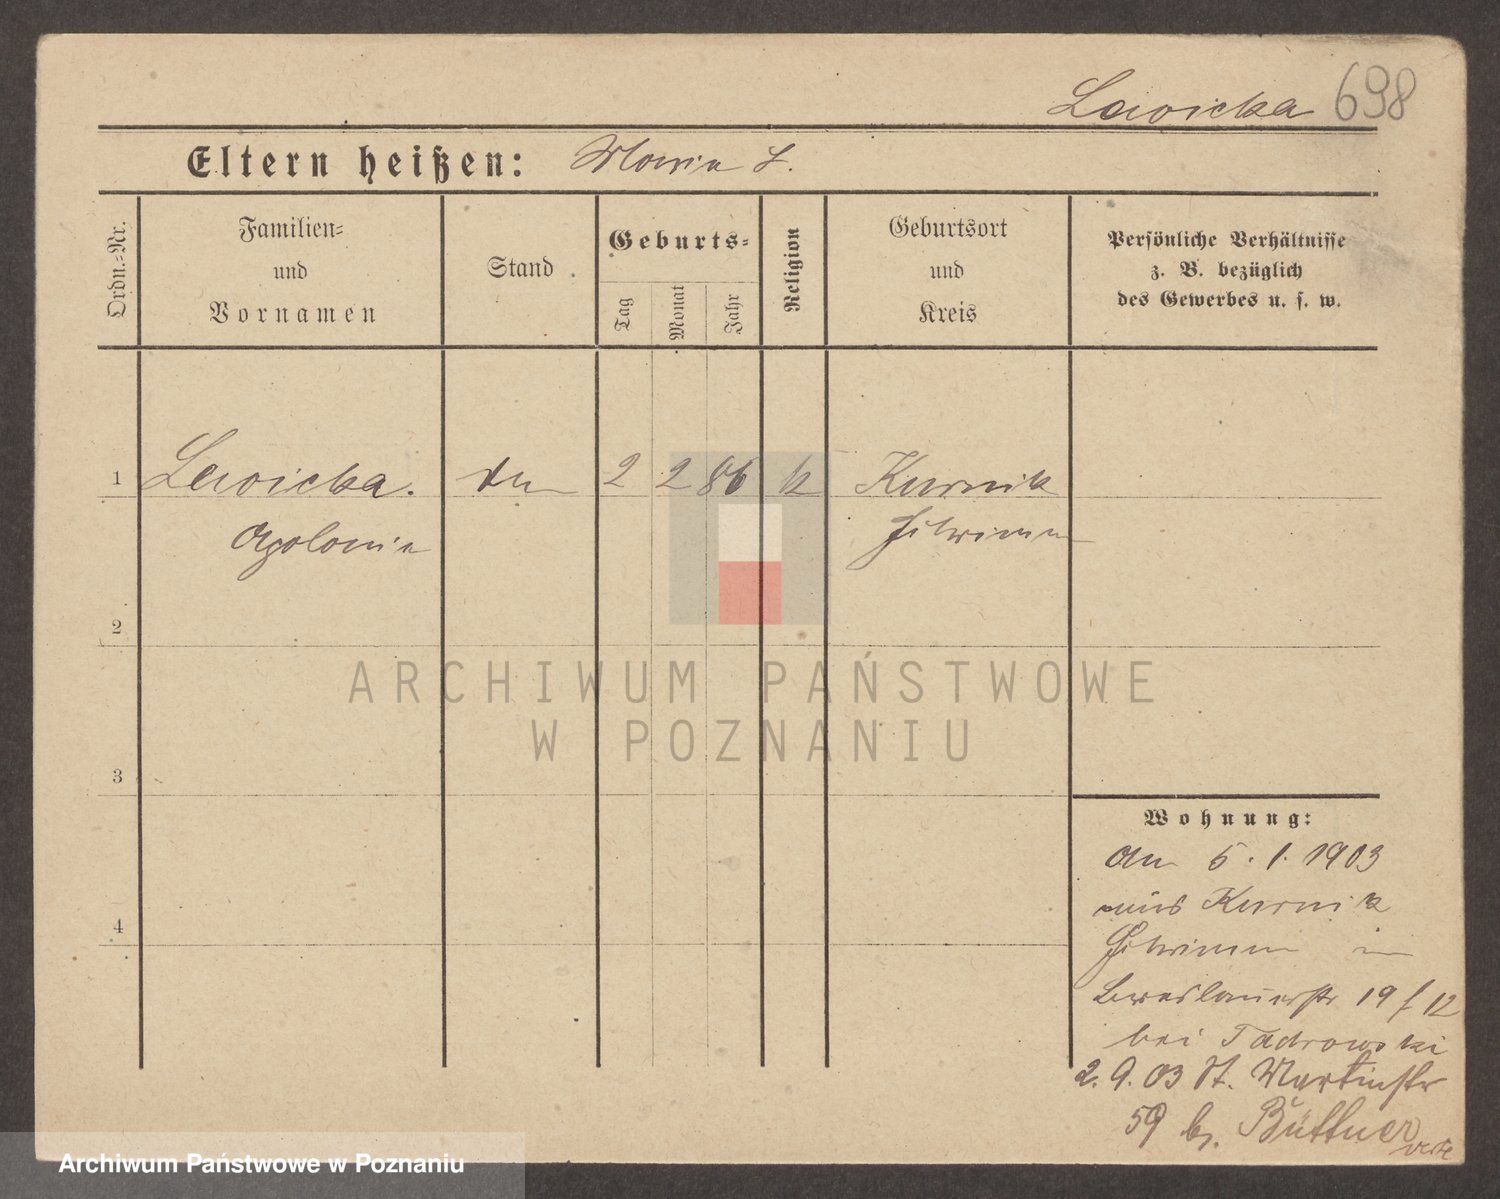 Lewicka 698
Eltern heißen: Maria L.
Ordn.-Nr.
Familien-
und
Vornamen
Stand
Geburts-
Tag
Monat
Jahr
Religion
Geburtsort
und
Kreis
Persönliche Verhältnisse
z. B. bezüglich
des Gewerbes u. s. w.
1 Lewicka. 2 2 86 k Kurnik
Apolonia Schrimm
2
3
4
Wohnung:
Am 5. 1. 1903
aus Kurnik
Schrimm in
Breslauerstr 19 / 12
bei Tadrowski
2. 9. 03 St. Martinstr
59 b. Büttner
ARCHIWUM PAŃSTWOWE
W POZNANIU
Archiwum Państwowe w Poznaniu